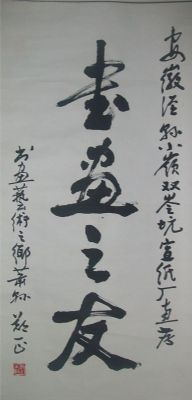 安徽泾县小岭双岑坑宣纸厂惠存
书画之友
书画艺术之乡萧县郑正